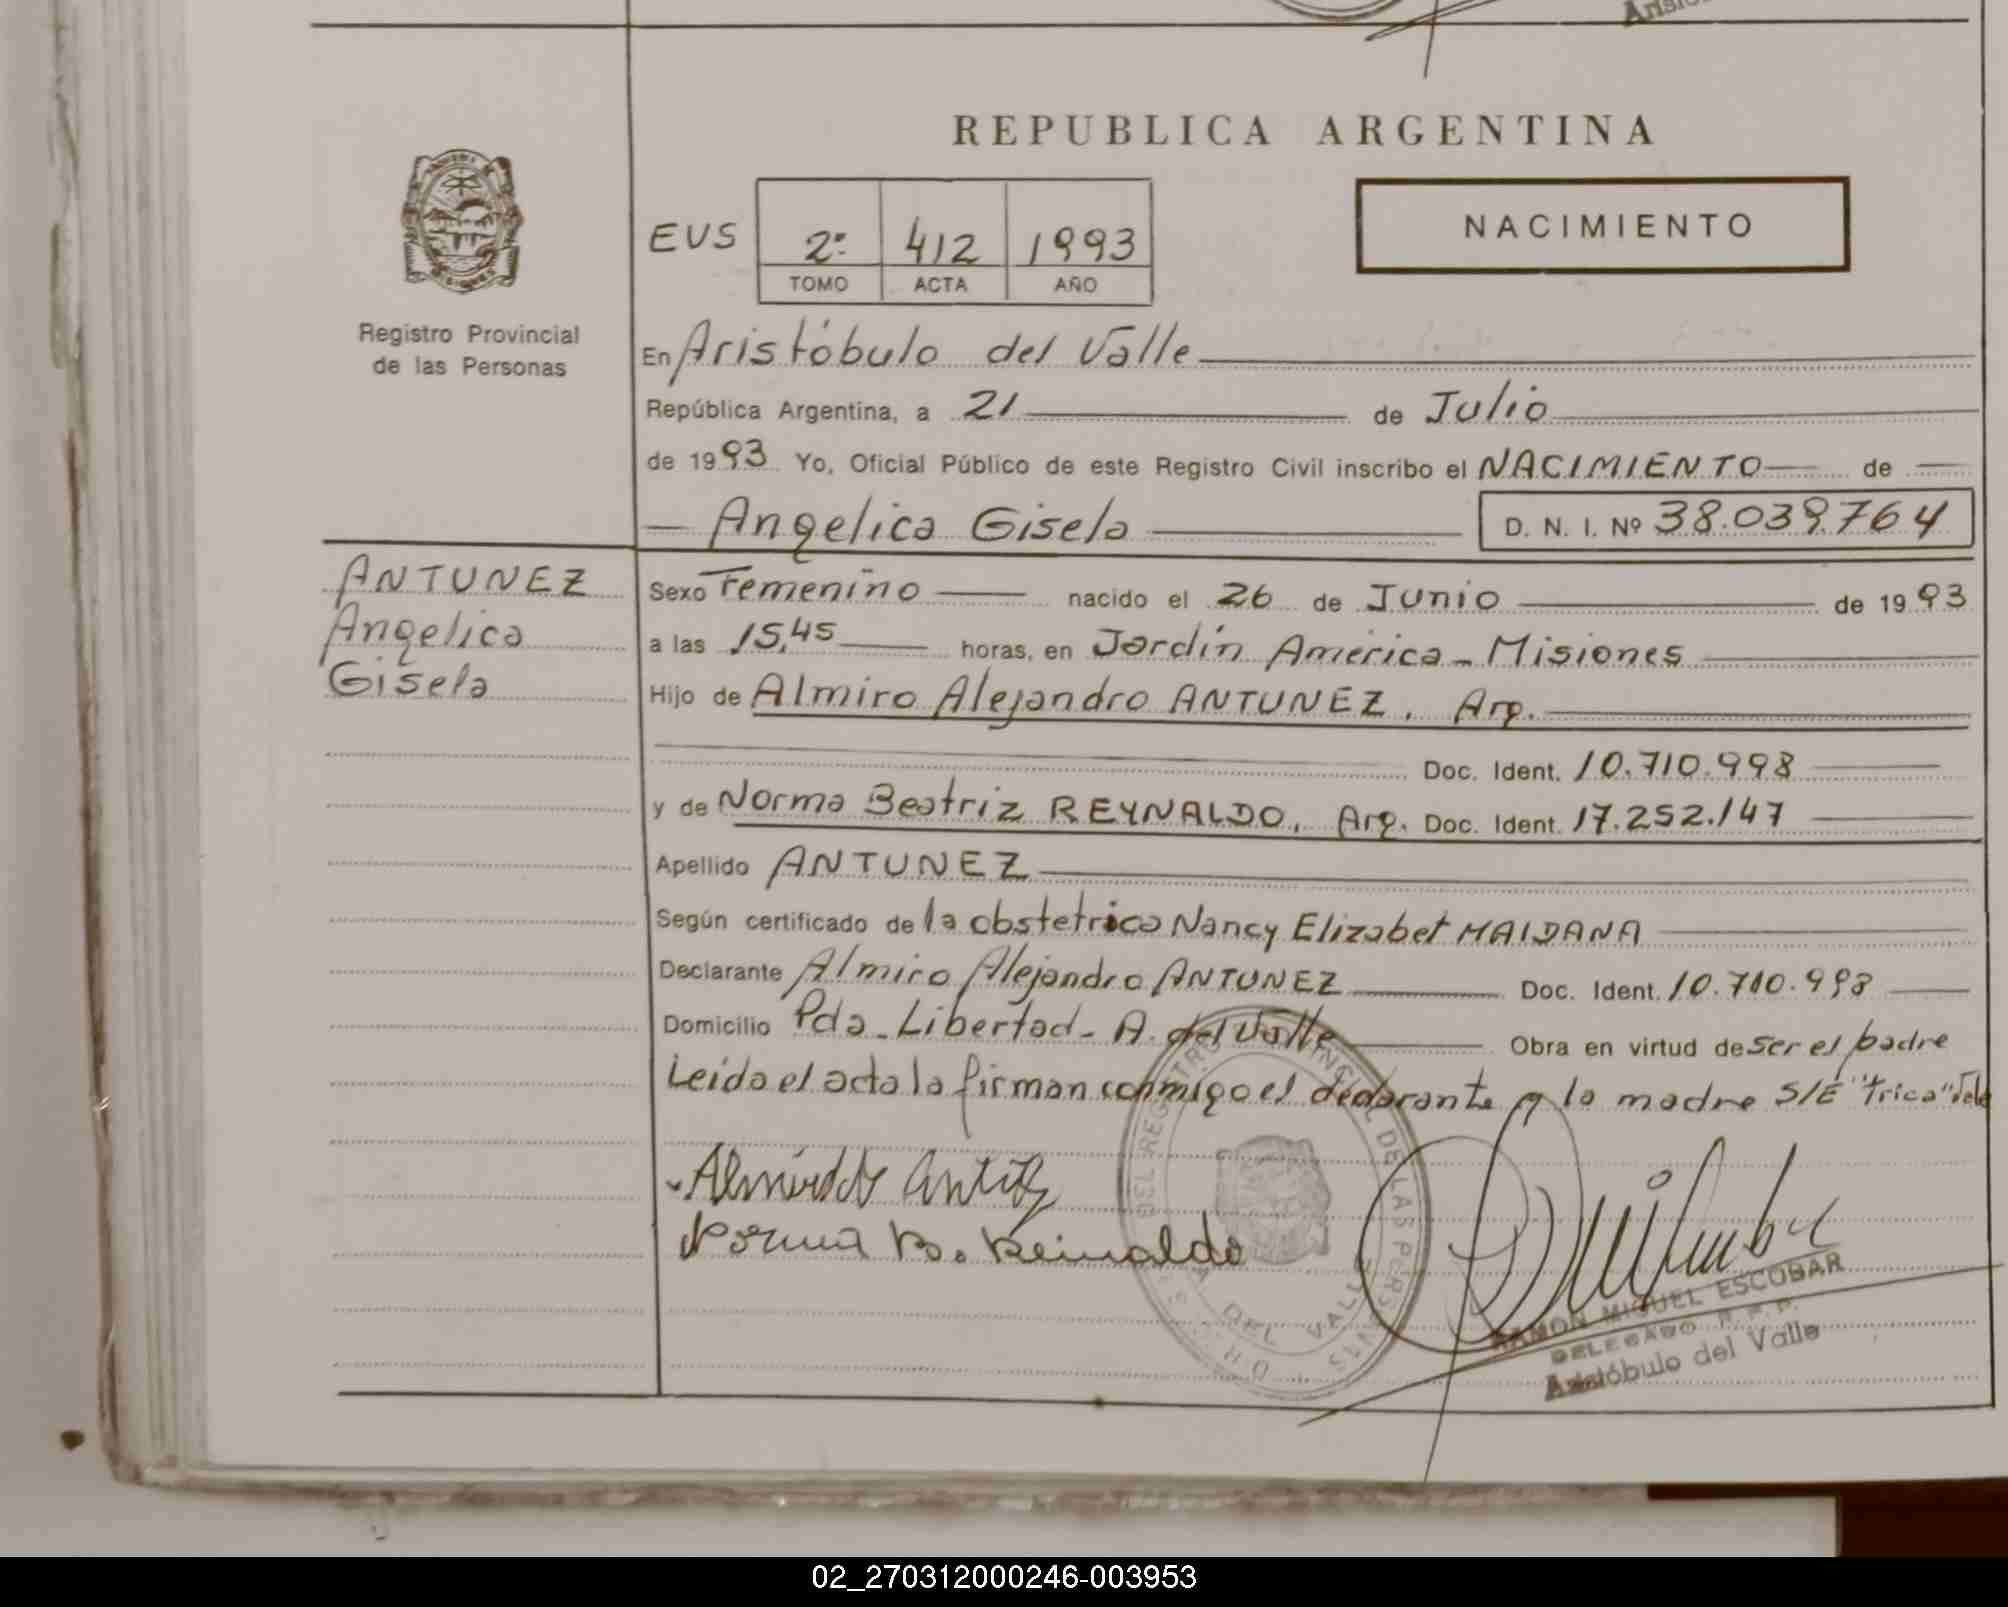 Aristó
REPUBLICA ARGENTINA
NACIMIENTO
EUS 2º 412 1993
TOMO ACTA AÑO
Registro Provincial
de las Personas
En Aristóbulo del Valle
República Argentina, a 21 de Julio
de 1993 Yo, Oficial Público de este Registro Civil inscribo el NACIMIENTO de
Angelica Gisela D. N. I. Nº 38.039.764
ANTUNEZ
Angelica
Gisela
Sexo Femenino nacido el 26 de Junio de 1993
a las 15,45 horas, en Jardín América - Misiones
Hijo de Almiro Alejandro ANTUNEZ, Arg.
Doc. Ident. 10.710.998
y de Norma Beatriz REYNALDO, Arg. Doc. Ident. 17.252.147
Apellido ANTUNEZ
Según certificado de la obstetrica Nancy Elizabet MAIDANA
Declarante Almiro Alejandro ANTUNEZ Doc. Ident. 10.710.998
Domicilio Pda. Libertad - A. del Valle Obra en virtud de ser el padre
Leida el acta la firman conmigo el declarante y la madre S/E "trica" Vale
Norma B. Reinaldo
DEL REGISTRO PROVINCIAL DE LAS PERSONAS
A. DEL VALLE
RAMON MIGUEL ESCOBAR
DELEGADO R. P. P.
Aristóbulo del Valle
02_270312000246-003953